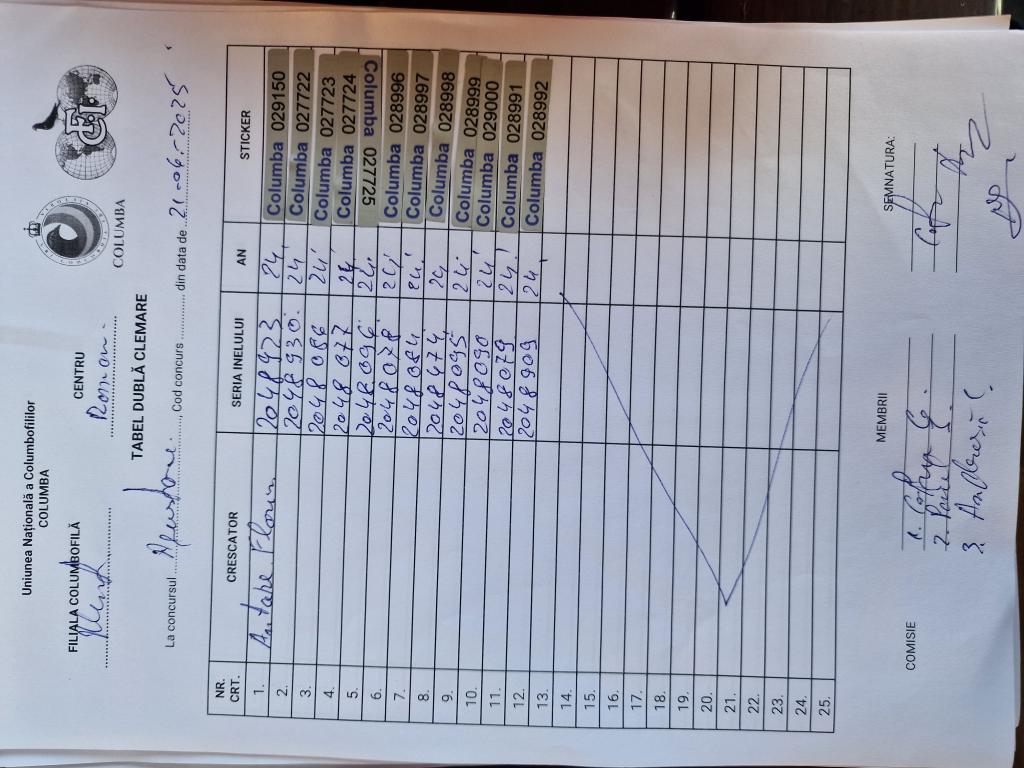 Uniunea Națională a Columbofililor
COLUMBA
FILIALA COLUMBOFILĂ
CENTRU
Roman
COLUMBA
TABEL DUBLĂ CLEMARE
La concursul ........, Cod concurs ........ din data de 21-06-2025
NR. CRT. CRESCATOR SERIA INELULUI AN STICKER
1. Antale Florin 2048923 24 Columba 029150
2. 2048930 24 Columba 027722
3. 2048086 24 Columba 027723
4. 2048077 24 Columba 027724
5. 2048096 24 Columba 027725
6. 2048078 24 Columba 028996
7. 2048084 24 Columba 028997
8. 2048474 24 Columba 028998
9. 2048095 24 Columba 028999
10. 2048090 24 Columba 029000
11. 2048079 24 Columba 028991
12. 2048909 24 Columba 028992
13.
14.
15.
16.
17.
18.
19.
20.
21.
22.
23.
24.
25.
COMISIE
MEMBRII
SEMNATURA:
1.
2.
3.